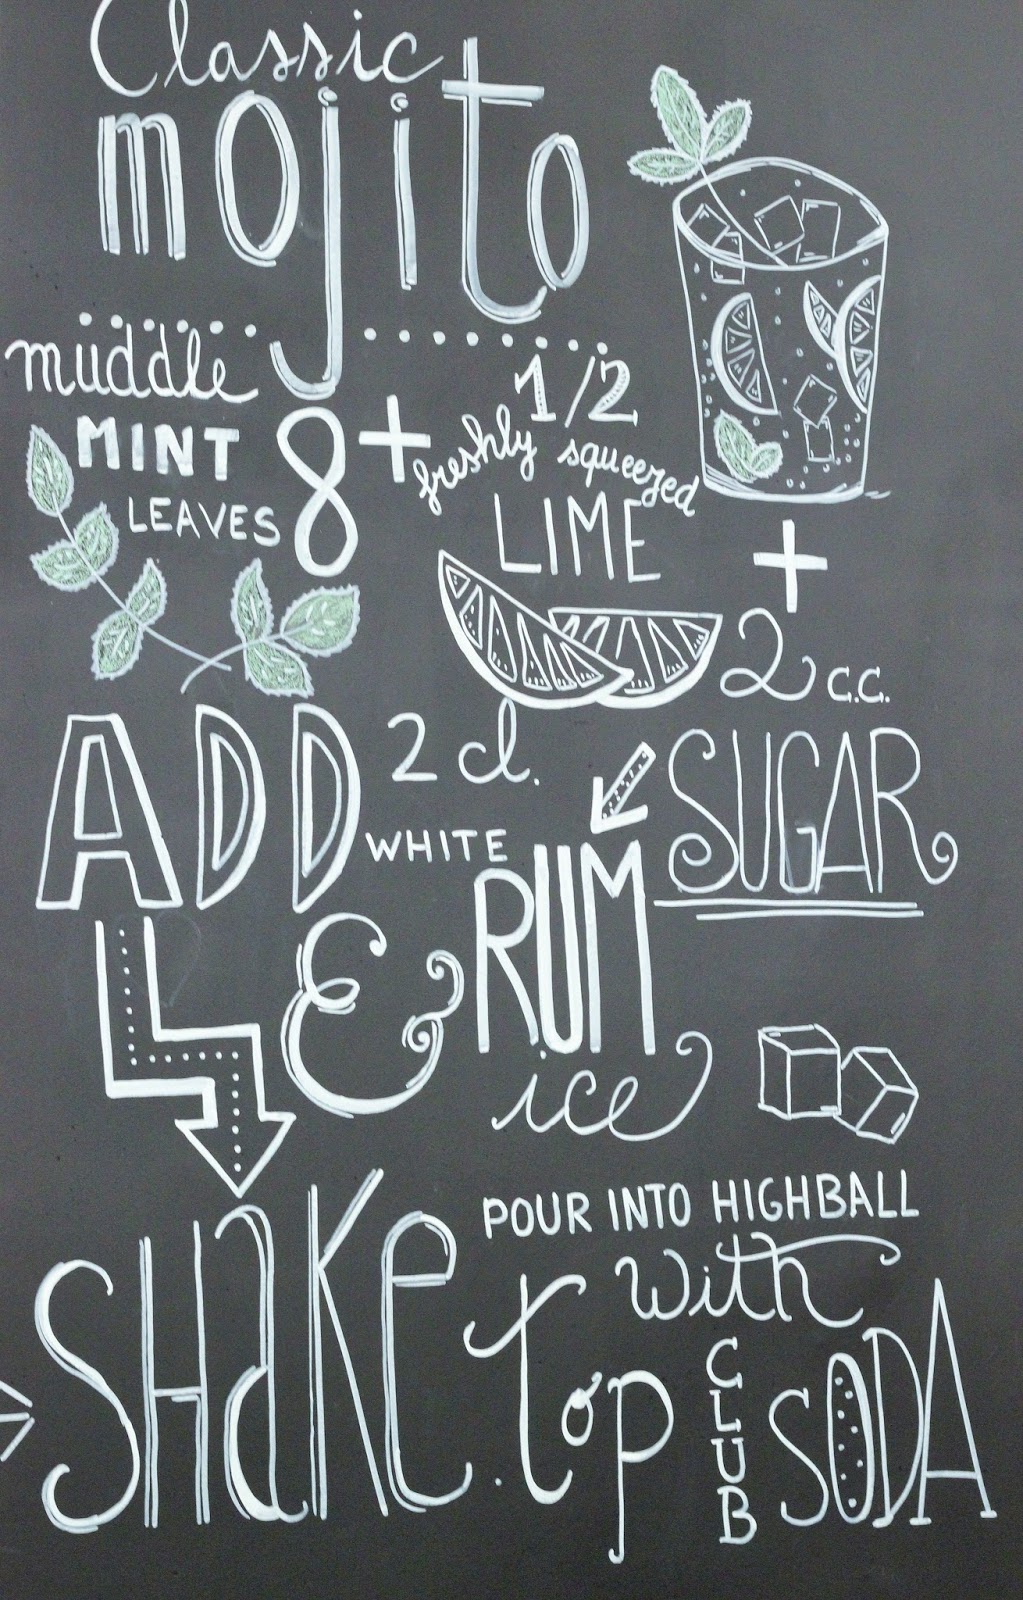 Classic
mojito
muddle
MINT
LEAVES
8
+
1/2
freshly squeezed
LIME
+
2 c.c.
SUGAR
ADD
2 cl.
WHITE
RUM
&
ice
SHaKe.
POUR INTO HIGHBALL
Top
with
CLUB
SODA